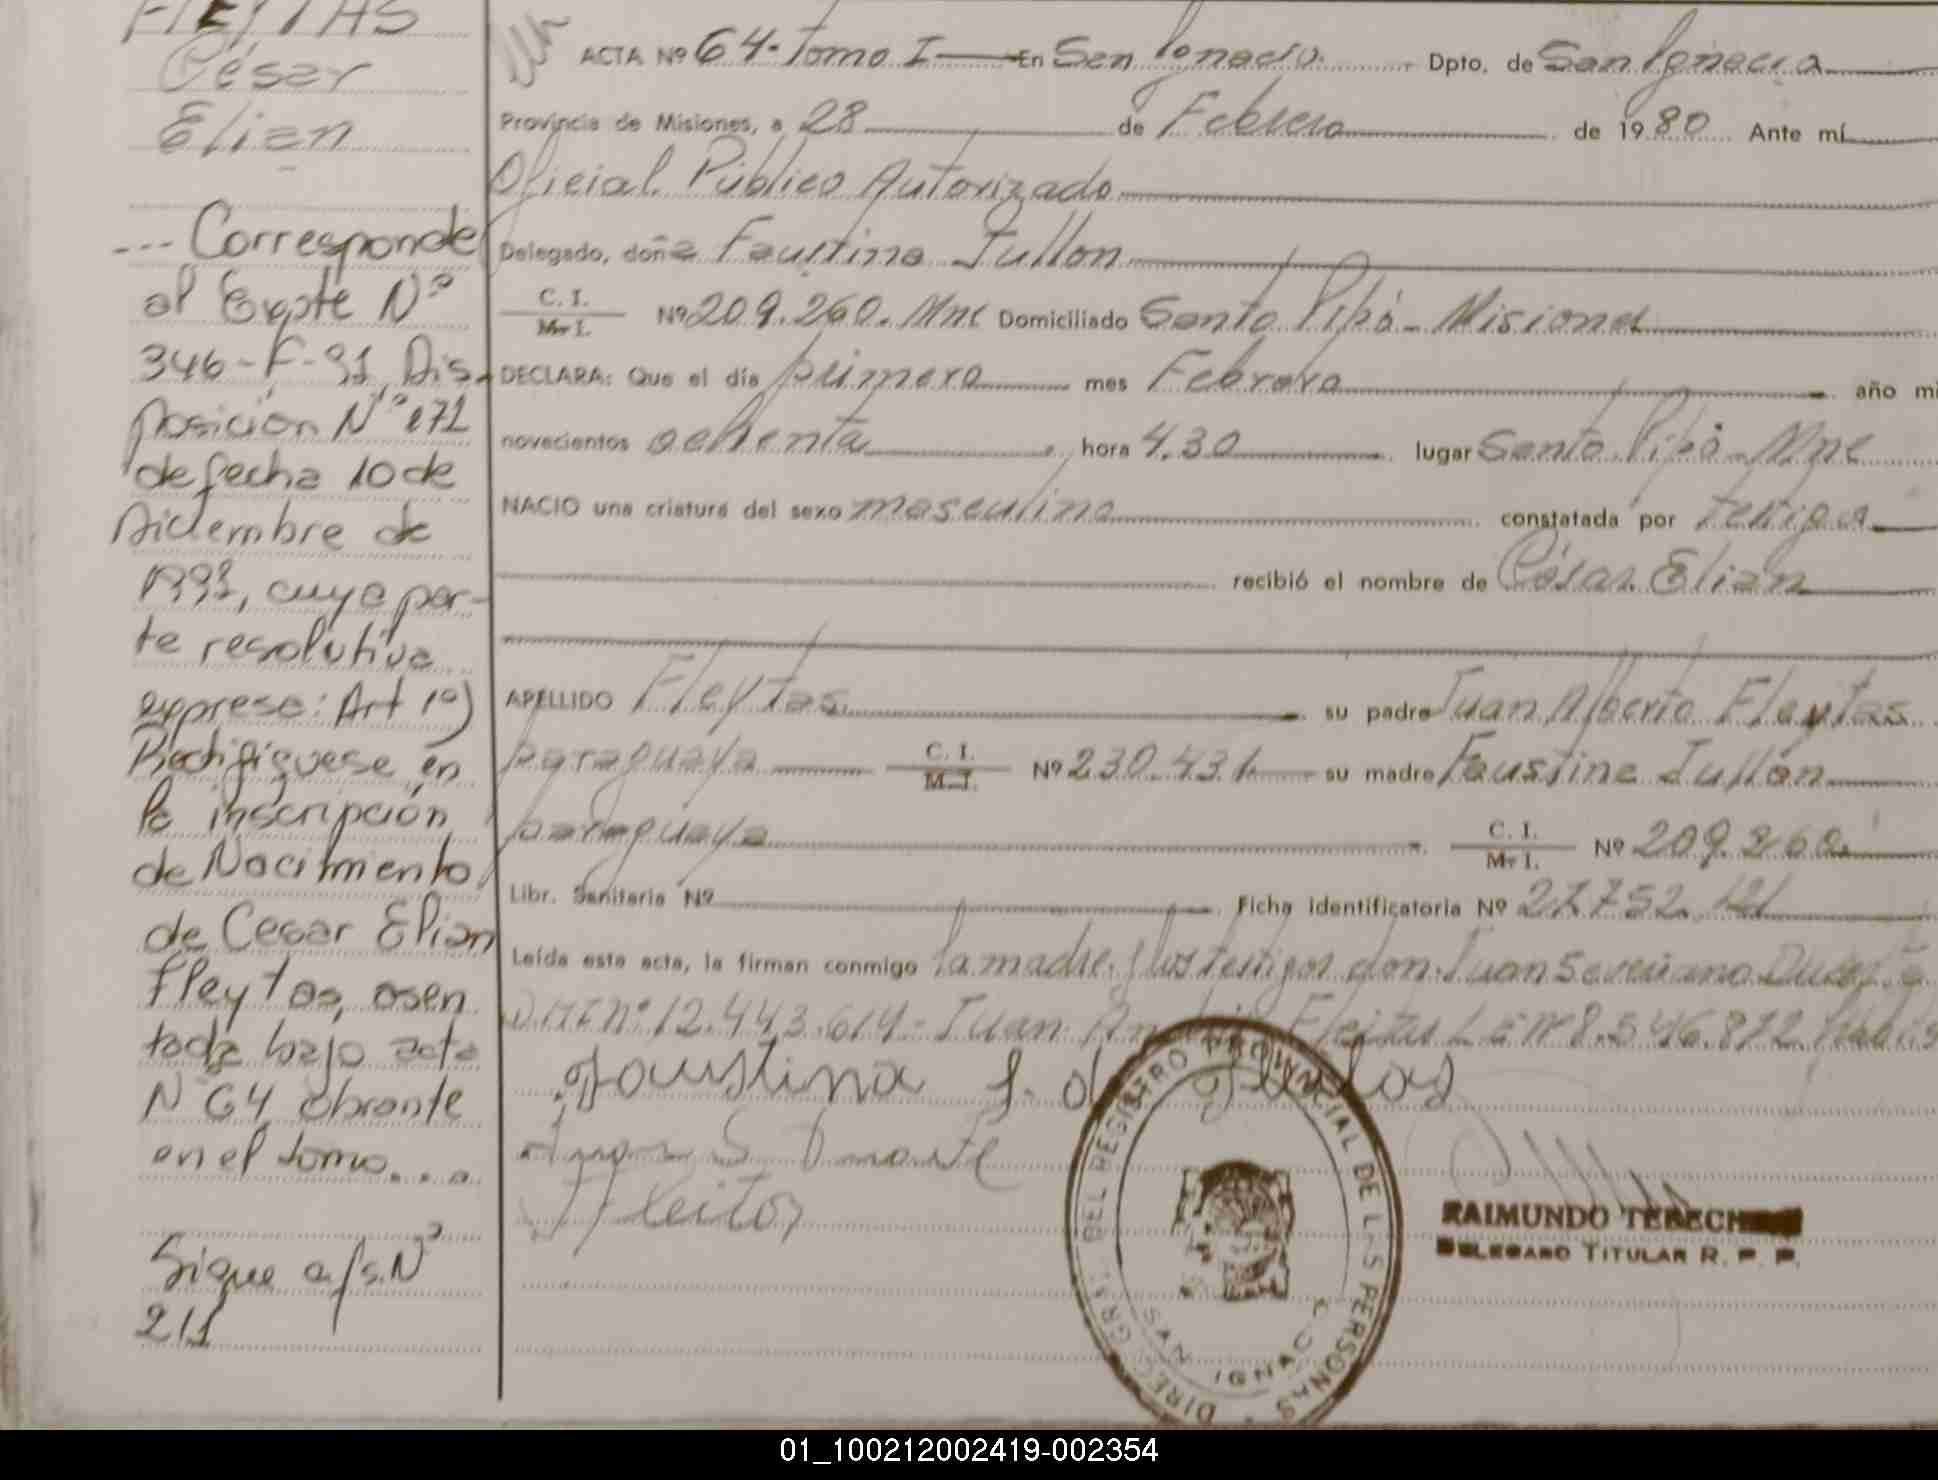 FLEYTAS
César
Elian
--- Corresponde
al Expte Nº
346-F-91, Dis-
posición Nº 171
de fecha 10 de
diciembre de
1991, cuya par-
te resolutiva
expresa: Art 1º)
Rectifiquese en
la inscripción
de Nacimiento
de Cesar Elian
Fleytas, asen
tada bajo acta
Nº 64 obrante
en el tomo....
Sigue a fs. Nº
211
ACTA Nº 64- Tomo I En San Ignacio Dpto. de San Ignacio
Provincia de Misiones, a 28 de Febrero de 1980 Ante mí
Oficial Público Autorizado
Delegado, doña Faustina Jullon
C. I. M. I. Nº 209.260. Mnes Domiciliado Santo Pipó - Misiones
DECLARA: Que el día primero mes Febrero año mi
novecientos ochenta, hora 4.30 lugar Santo Pipó - Mnes
NACIO una criatura del sexo masculino constatada por testigos
recibió el nombre de César Elian
APELLIDO Fleytas su padre Juan Alberto Fleytas
paraguaya C. I. M. I. Nº 230.431 su madre Faustina Jullón
paraguaya C. I. M. I. Nº 209.260.
Libr. Sanitaria Nº Ficha identificatoria Nº 27.752.121
Leída esta acta, la firman conmigo la madre y los testigos don Juan Severiano Duarte
DNI Nº 12.443.614 - Juan Fleitas L E Nº 8.546.872
Faustina J. de Fleitas
Juan S Duarte
Fleitas
DIREC. GRAL. DEL REGISTRO PROVINCIAL DE LAS PERSONAS
SAN IGNACIO
RAIMUNDO
DELEGADO TITULAR R. P. P.
01_100212002419-002354